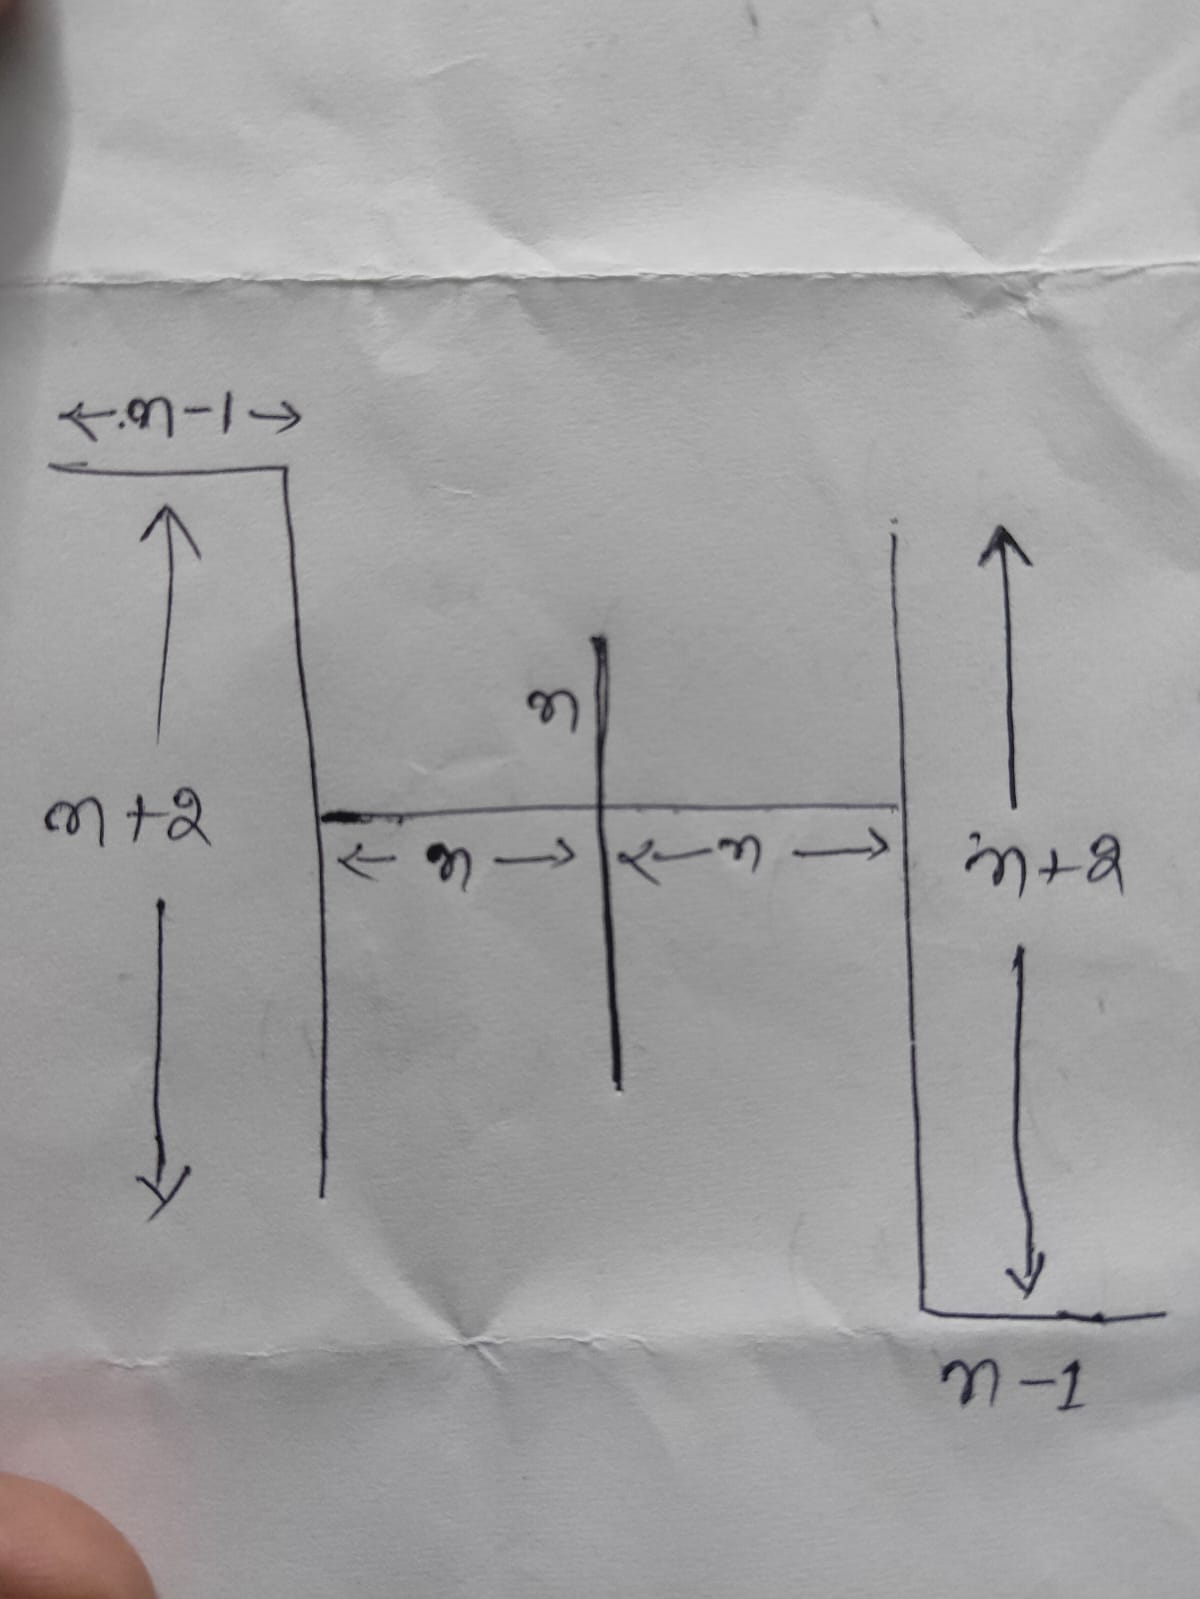 n-1
n
n+2
n
n
n+2
n-1